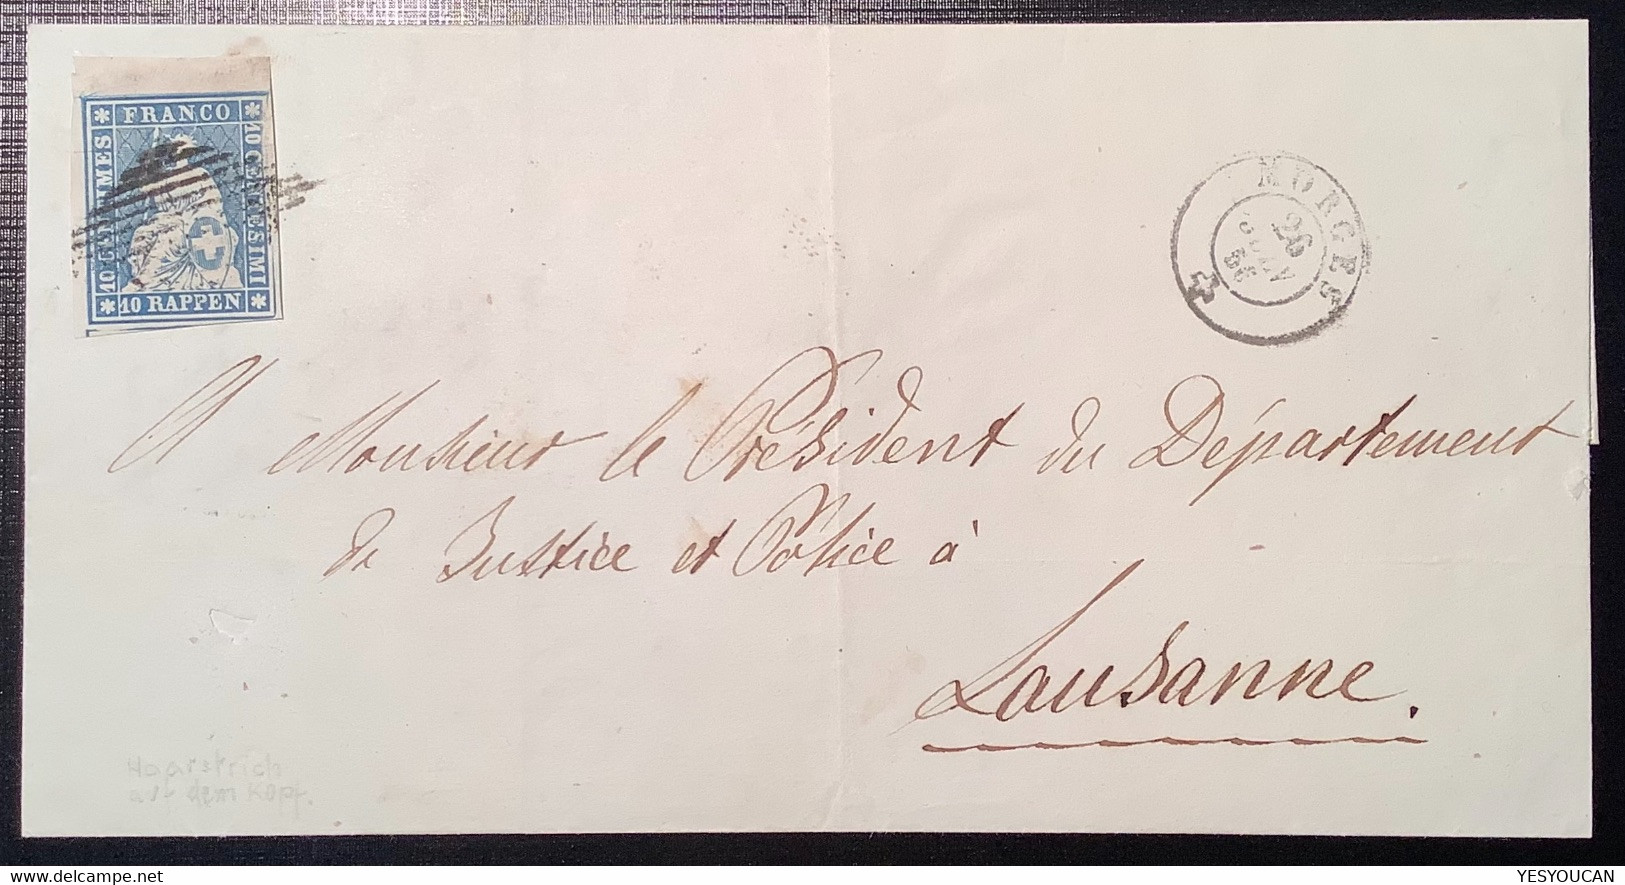 FRANCO
10 CENTIMES
10 CENTESIMI
10 RAPPEN
MORGES
26
56
A Monsieur le Président du Département
de Justice et Police à
Lausanne.
Haarstrich
auf dem Kopf.
delcampe.net
YESYOUCAN